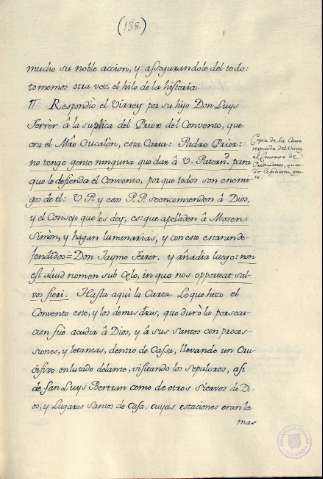 (138)
mucho su noble accion, y assegurandole del todo:
tomemos otra vez el hilo de la historia:
Respondió el Virrey por su hijo Don Luys
Ferrer à la suplica del Prior del Convento, que
era el Mro Cucalon, esta Carta: Padre Prior:
no tengo gente ninguna que dar à V. Patern. para
que le defienda el Convento, por que todos son enemi-
gos de el: V. P. y essos P.P. se encomienden à Dios,
y el Consejo que les doy, es que apelliden à Mosen
Simon, y hagan luminarias, y con esto estaran de-
fendidos = Don Jayme Ferrer. y añadia luego: non
est aliud nomen sub Celo, in quo nos oporteat sal-
vos fieri. Hasta aquì la Carta. Lo que hizo el
Convento este, y los demas dias, que durò la persecu-
cion fuè acudir à Dios, y à sus Santos con proce-
siones, y letanias, dentro de Casa, llevando un Cru-
cifixo enlutado delante, visitando los sepulcros, asi
de San Luys Bertran como de otros Siervos de Di-
os, y Lugares Santos de Casa. cuyas estaciones eran la
mas
Copia de la Carta